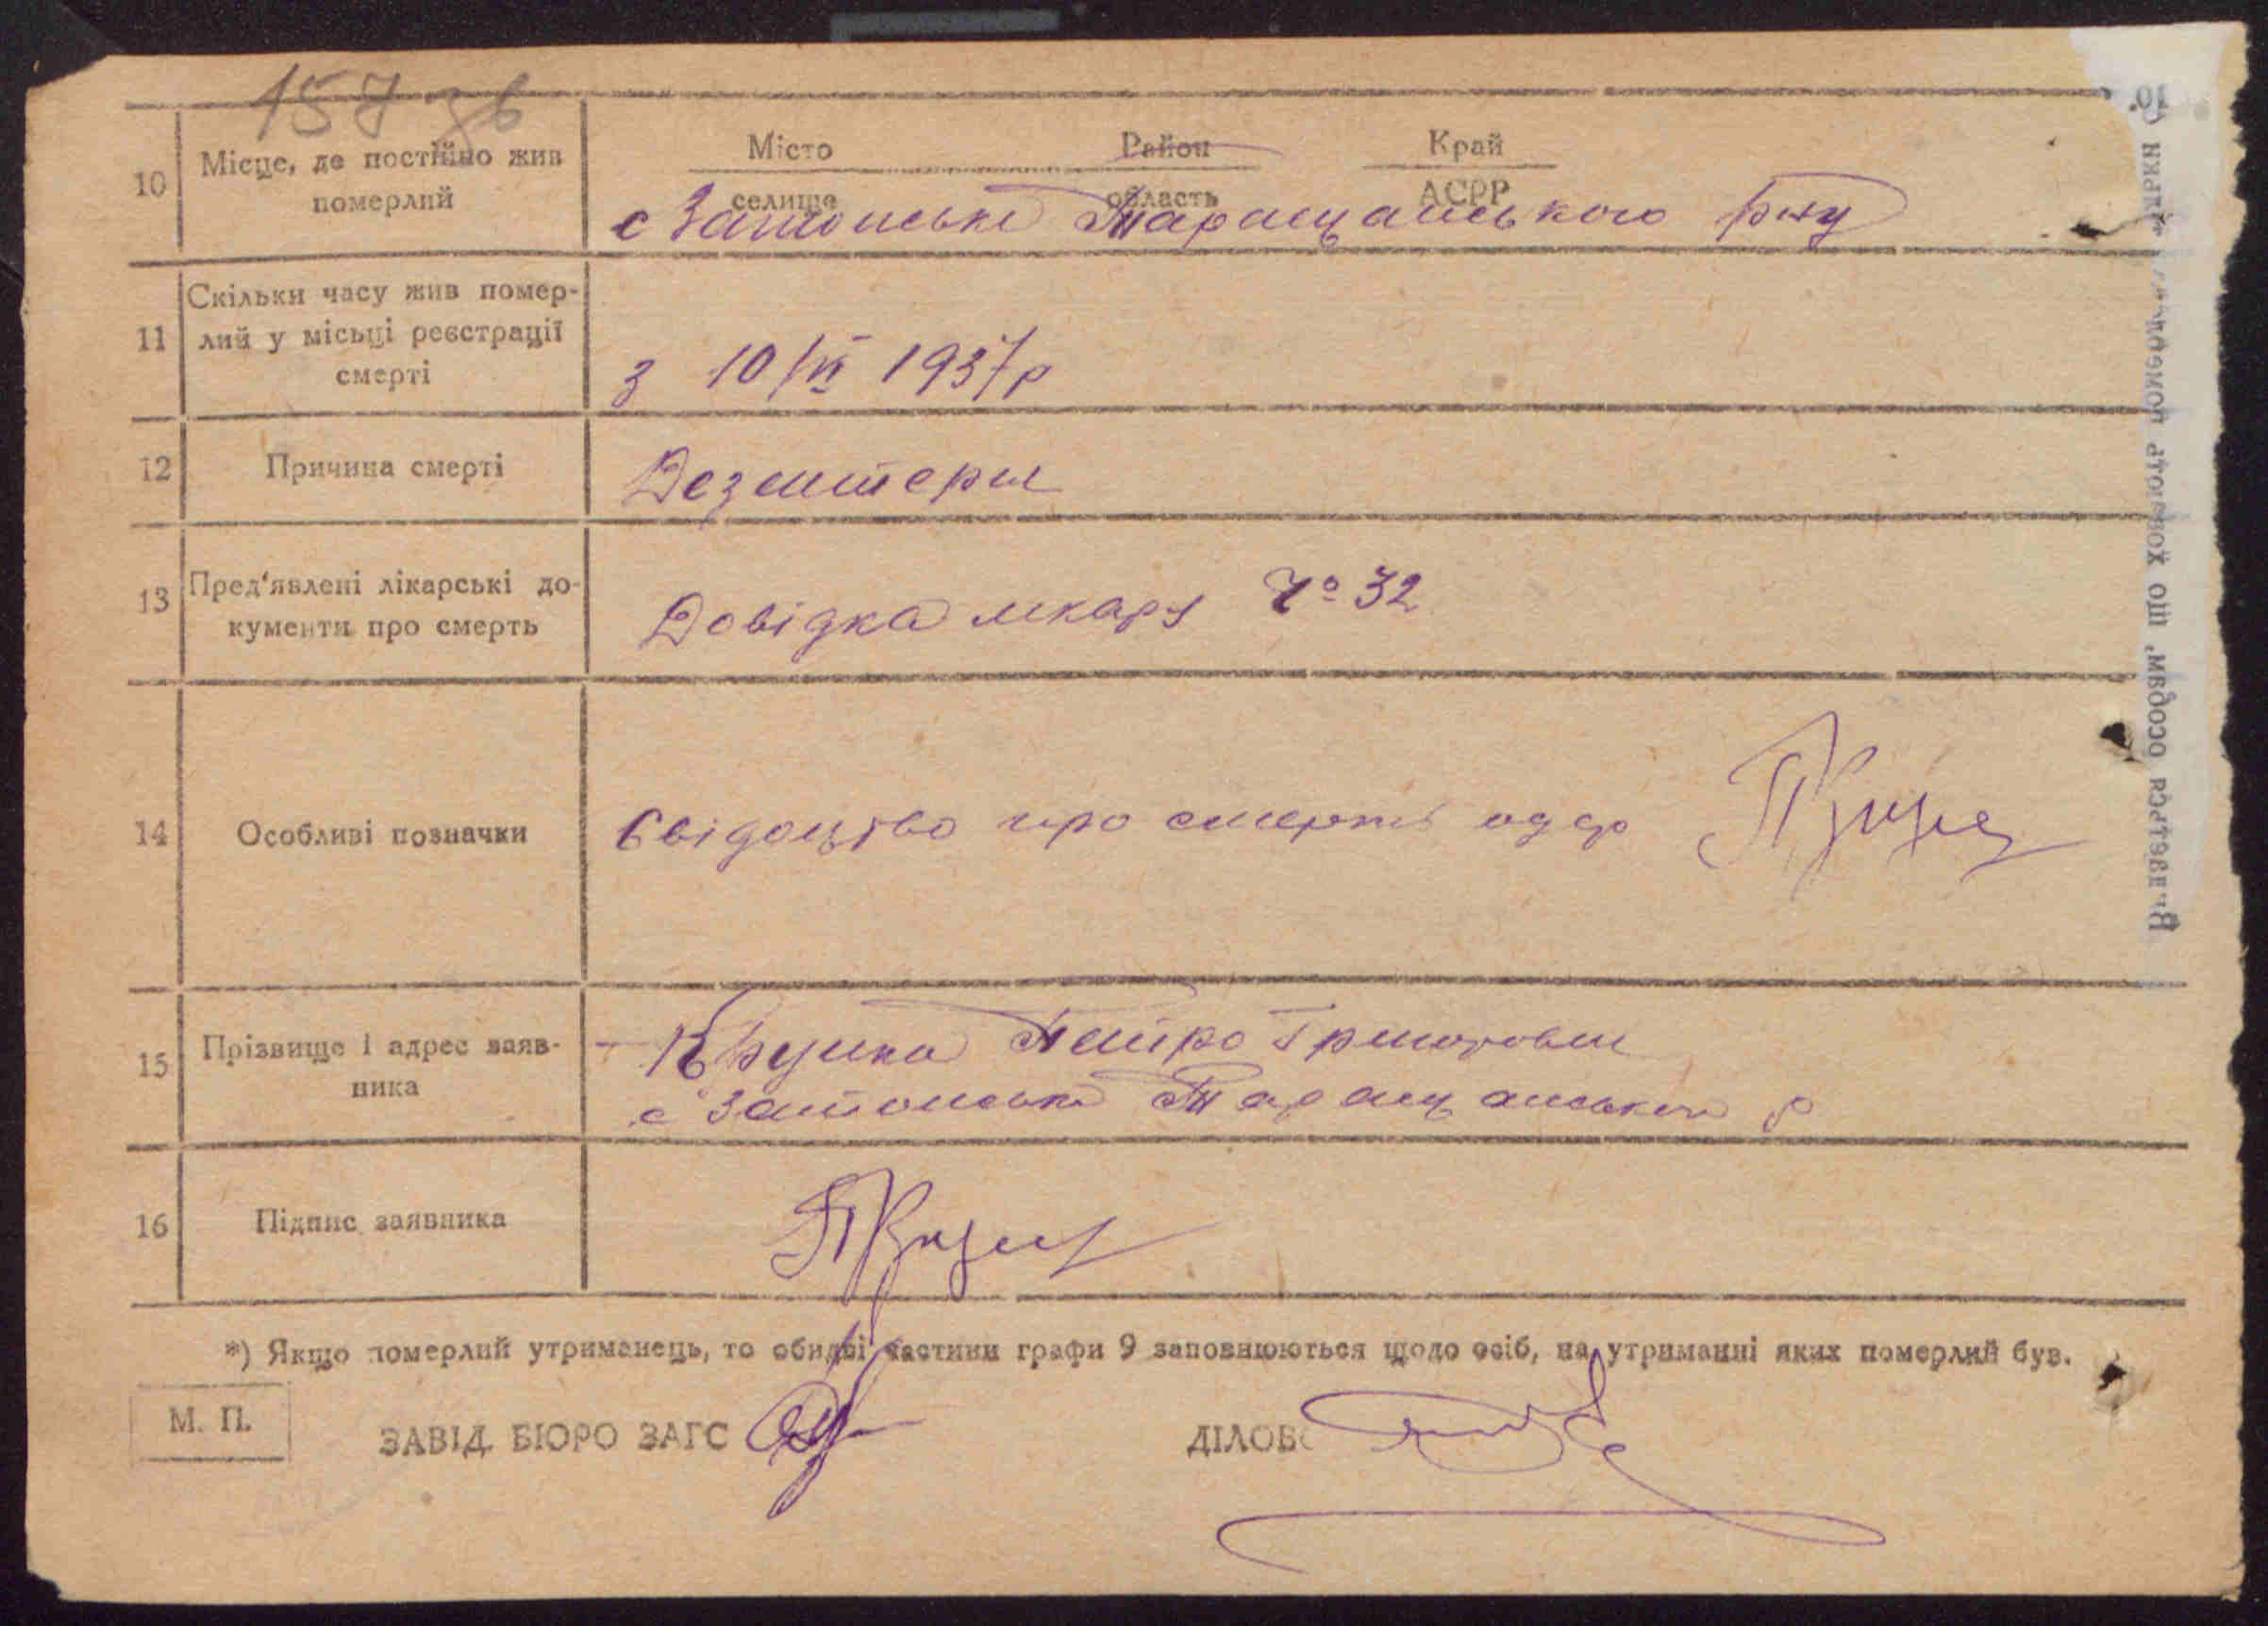 157 зв
10 Місце, де постійно жив померлий
Місто Район Край
селище область АСРР
с Затонське Таращанського р-ну
11 Скільки часу жив помер-
лий у місьці реєстрації
смерті
з 10/VI 1937р
12 Причина смерті
Дезинтерия
13 Пред'явлені лікарські до-
кументи про смерть
Довідка лікаря № 32
14 Особливі позначки
Свідоцтво про смерть одер
15 Прізвище і адрес заяв-
ника
Петро Григорович
с Затонське Таращанського р
16 Підпис заявника
*) Якщо померлий утриманець, то обидві частини графи 9 заповнюються щодо осіб, на утриманні яких померлий був.
М. П.
ЗАВІД. БЮРО ЗАГС
ДІЛОВ